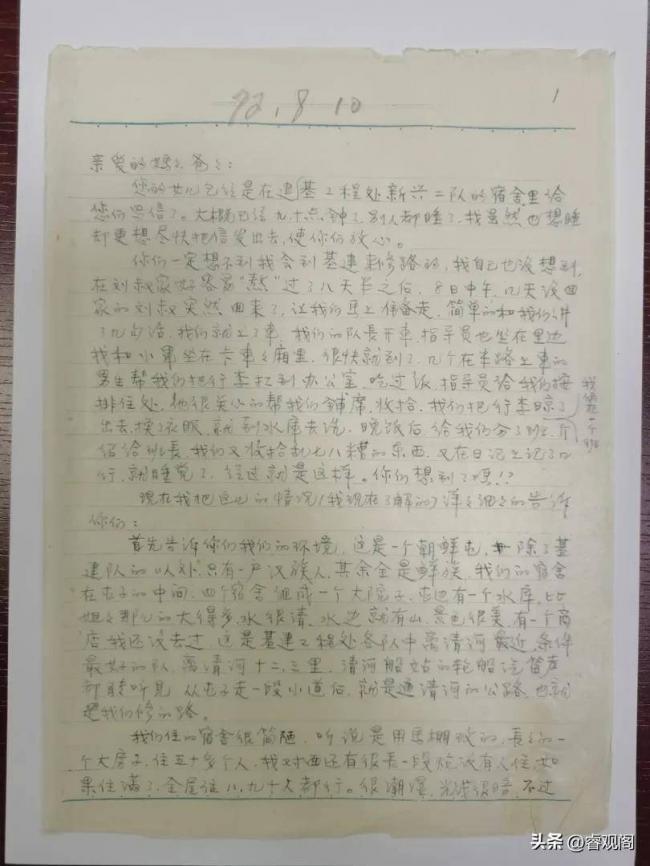 72.8.10
1
亲爱的妈妈、爸爸：
您的女儿已经是在道基工程处新兴二队的宿舍里给
您们写信了。大概已经九十点钟了，别人都睡了，我虽然也想睡
却更想尽快把信发出去，使你们放心。
你们一定想不到我会到基建来修路的，我自己也没想到，
在刘叔家好容易“熬”过了八天半之后，8日中午，几天没回
家的刘叔突然回来了，让我们马上准备走，简单的和我们讲
了几句话，我们就上了车，我们的队长开车，指导员也坐在里边
我和小第坐在卡车车厢里，很快就到了，几个在车路上车的
男生帮我们把行李扛到办公室，吃过饭，指导员给我们按
排住处，他很关心的帮我们铺席，收拾，我们把行李晾了
出去，换了衣服，就到水库去洗，晚饭后，给我们分了班，介
我俩在一个班
绍给班长，我们又收拾乱七八糟的东西，又在日记上记了几
行，就睡觉了，经过就是这样。你们想到了吗!?
现在我把这儿的情况（我现在了解的）详详细细的告诉
你们：
首先告诉你们我们的环境，这是一个朝鲜屯，除了基
建队的以外，只有一户汉族人，其余全是鲜族，我们的宿舍
在屯子的中间，四个宿舍组成一个大院子，屯边有一个水库，比
姐姐那儿的大得多，水很清，水边就有山，景色很美，有一个商
店，我还没去过，这是基建工程处各队中离清河最近，条件
最好的队，离清河十二、三里，清河船站的轮船汽笛声
都能听见，从屯子走一段小道后，就是通清河的公路，也就
是我们修的路。
我们住的宿舍很简陋，听说是用马棚改的，长长的一
个大房子，住五十多个人，我对面还有很长一段炕没有人住，如
果住满了，全屋住八、九十人都行。很潮湿，光线很暗，不过
头条 @睿观阁